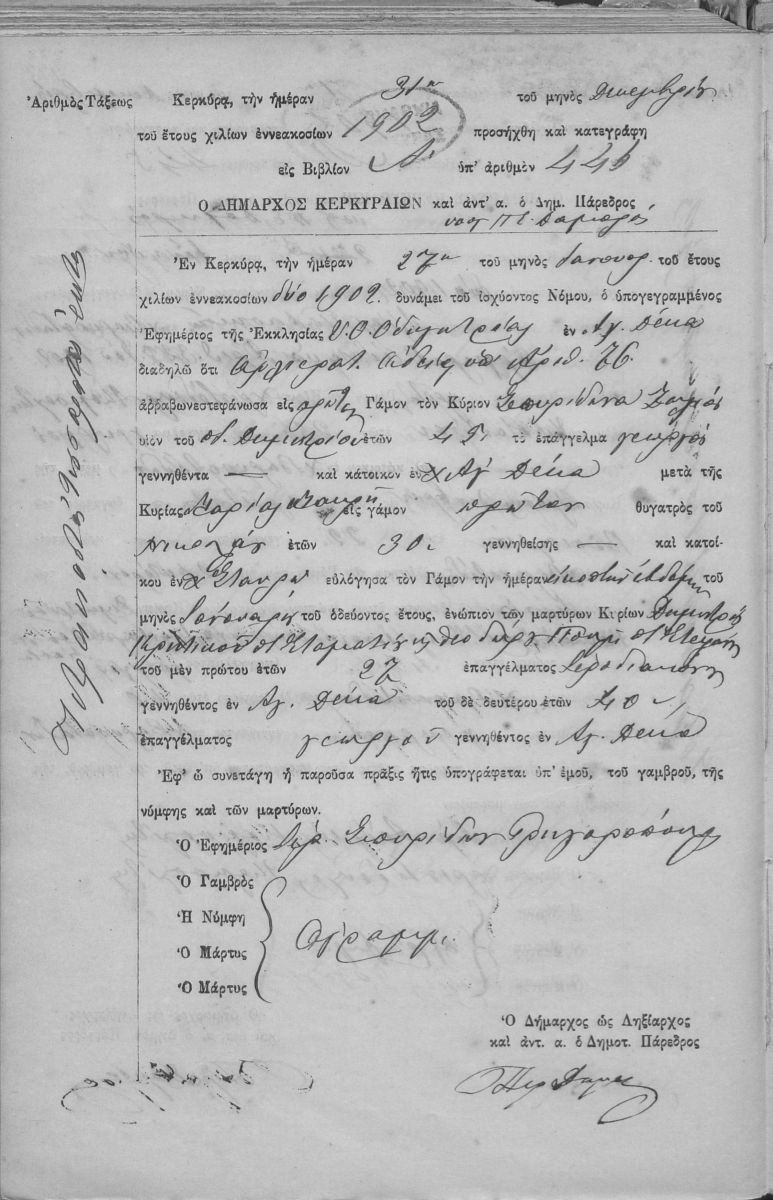 Ἀριθμὸς Τάξεως
Κερκύρᾳ, τὴν ἡμέραν 31η τοῦ μηνὸς Δεκεμβρίου
τοῦ ἔτους χιλίων ἐννεακοσίων 1902 προσήχθη καὶ κατεγράφη
εἰς Βιβλίον Α. ὑπ' ἀριθμὸν
Ὁ ΔΗΜΑΡΧΟΣ ΚΕΡΚΥΡΑΙΩΝ καὶ ἀντ' α. ὁ Δημ. Πάρεδρος
Ἐν Κερκύρᾳ, τὴν ἡμέραν 27η τοῦ μηνὸς Ἰανουαρ. τοῦ ἔτους
χιλίων ἐννεακοσίων δύο 1902. δυνάμει τοῦ ἰσχύοντος Νόμου, ὁ ὑπογεγραμμένος
Ἐφημέριος τῆς Ἐκκλησίας Υ. Θ. Ὁδηγητρίας ἐν Ἁγ. Δέκα
διαδηλῶ ὅτι ἀρχιερατ. ἀδείᾳ ὑπ' ἀριθ. 76.
ἀρραβωνεστεφάνωσα εἰς πρῶτον Γάμον τὸν Κύριον Σπυρίδωνα
υἱὸν τοῦ π. Δημητρίου ἐτῶν 45. τὸ ἐπάγγελμα γεωργὸς
γεννηθέντα — καὶ κάτοικον ἐν χ. Ἁγ. Δέκα μετὰ τῆς
Κυρίας Μαρίας εἰς γάμον πρῶτον θυγατρὸς τοῦ
Νικολάου ἐτῶν 30. γεννηθείσης — καὶ κατοί-
κου ἐν χ. Σταυρῷ εὐλόγησα τὸν Γάμον τὴν ἡμέραν εἰκοστὴν ἑβδόμην τοῦ
μηνὸς Ἰανουαρίου τοῦ ὁδεύοντος ἔτους, ἐνώπιον τῶν μαρτύρων Κυρίων Δημητρίου
Κρητικοῦ π. Σταματίου καὶ Θεοδώρου π. Στεφάνου
τοῦ μὲν πρώτου ἐτῶν 27 ἐπαγγέλματος Ἱεροδιακόνου
γεννηθέντος ἐν Ἁγ. Δέκα τοῦ δὲ δευτέρου ἐτῶν 40
ἐπαγγέλματος γεωργοῦ γεννηθέντος ἐν Ἁγ. Δέκα
Ἐφ' ᾧ συνετάγη ἡ παροῦσα πρᾶξις ἥτις ὑπογράφεται ὑπ' ἐμοῦ, τοῦ γαμβροῦ, τῆς
νύμφης καὶ τῶν μαρτύρων.
Ὁ Ἐφημέριος Ἱερ. Σπυρίδων Γρηγορόπουλος
Ὁ Γαμβρὸς
Ἡ Νύμφη
Ὁ Μάρτυς
Ὁ Μάρτυς
Ἀγράμμ.
Ὁ Δήμαρχος ὡς Ληξίαρχος
καὶ ἀντ. α. ὁ Δημοτ. Πάρεδρος